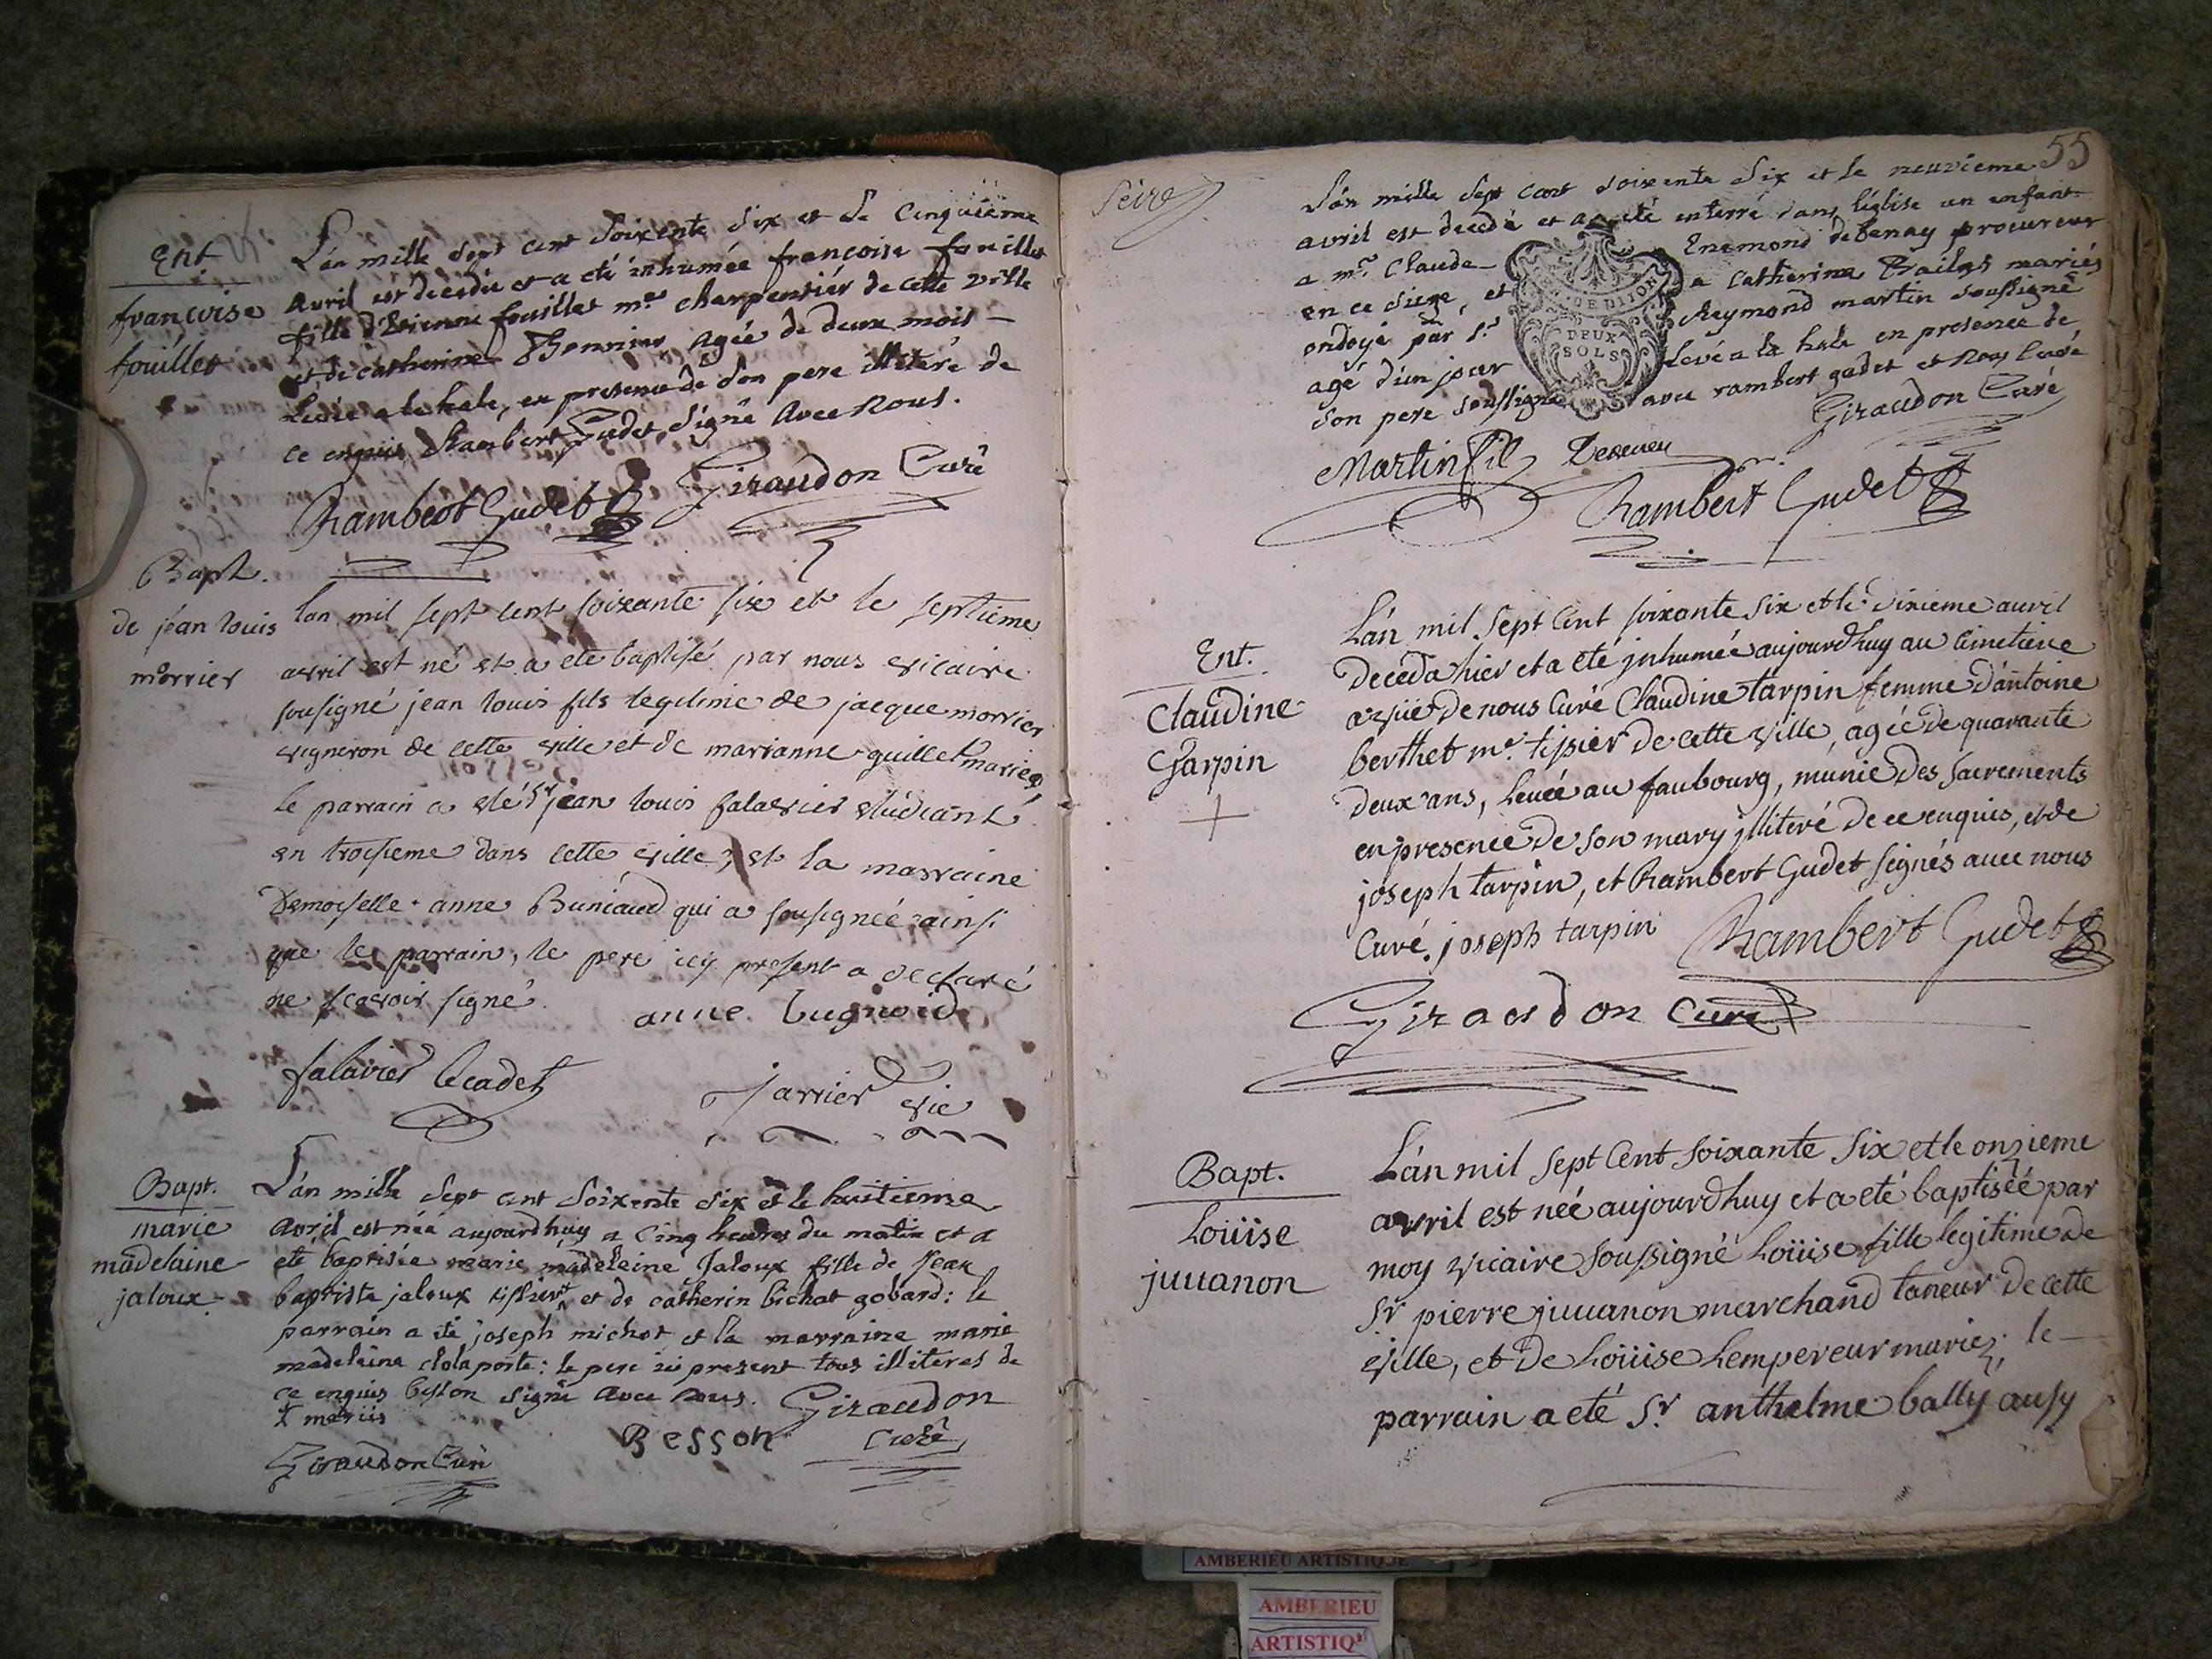 Ent
françoise
fouillet
L'an mille sept cent Soixente Six et le Cinquieme
avril est decedée et a eté inhumée françoise fouillet
fille d'Etienne fouillet me charpentier de cette ville
et de catherine agée de deux mois
Levée a la hale, en presence de son pere illiteré de
ce enquis, Rambert Gudet signé avec Nous.
Rambert Gudet Giraudon Curé
Bapt.
de jean louis
morrier
lan mil sept cent soixante six et le septieme
avril est né et a eté baptisé par nous vicaire
sousigné jean louis fils legitime de jacque morrier
vigneron de cette ville et de marianne guillet mariés
le parrain a eté Sr jean louis falavier etudiant
en troisieme dans cette ville, et la marraine
Demoiselle anne Buniaud qui a sousignée ainsi
que le parrain, le pere icy present a declaré
ne scavoir signé.
anne bugnoid
falavier le cadet
jarrier vic
Bapt.
marie
madelaine
jaloux
L'an mille Sept cent Soixente Six et le huitieme
Avril est née aujourdhuy a Cinq heures du matin et a
eté baptisée marie madeleine Jaloux fille de Jean
baptiste jaloux tissier et de catherin bichat gobard: le
parrain a eté joseph michot et la marraine marie
madeleine delaporte: le pere ici present tous illiteres de
ce enquis besson signé avec nous. Giraudon
mariés Besson Curé
Giraudon Curé
55
L'an mille Sept Cent Soixente Six et le neuvieme
avril est decedé et a eté enterré dans l'église un enfant
a me Claude Enemond debenay procureur
en ce siege, et a Catherine Trailas mariés
ondoyé par Sr Reymond martin soussigné
agé d'un jour Levé a la hale en presence de
son pere soussigné avec rambert gudet et Nous Curé
GEN. DE DIJON
DEUX
SOLS
Giraudon Curé
Martin fils
Rambert Gudet
Ent.
Claudine
Tarpin
L'an mil Sept Cent soixante Six et le dixieme avril
Deceda hier et a eté inhumée aujourdhuy au Cimetiere
de nous Curé Claudine tarpin femme d'antoine
berthet me. tissier de cette ville, agée de quarante
deux ans, levée au faubourg, munie des Sacrements
en presence de Son mary jlliteré de ce enquis, et de
joseph tarpin, et Rambert Gudet Signés avec nous
Curé. joseph tarpin Rambert Gudet
Giraudon Curé
Bapt.
Loüise
juuanon
L'an mil Sept Cent Soixante Six et le onzieme
avril est neé aujourdhuy et a eté baptiseé par
moy vicaire soussigné Loüise fille legitime de
Sr pierre juuanon marchand taneur de cette
ville, et de Loüise Lempereur mariez; le
parrain a eté Sr. anthelme bally ausy
AMBERIEU ARTISTIQUE
AMBERIEU
ARTISTIQ